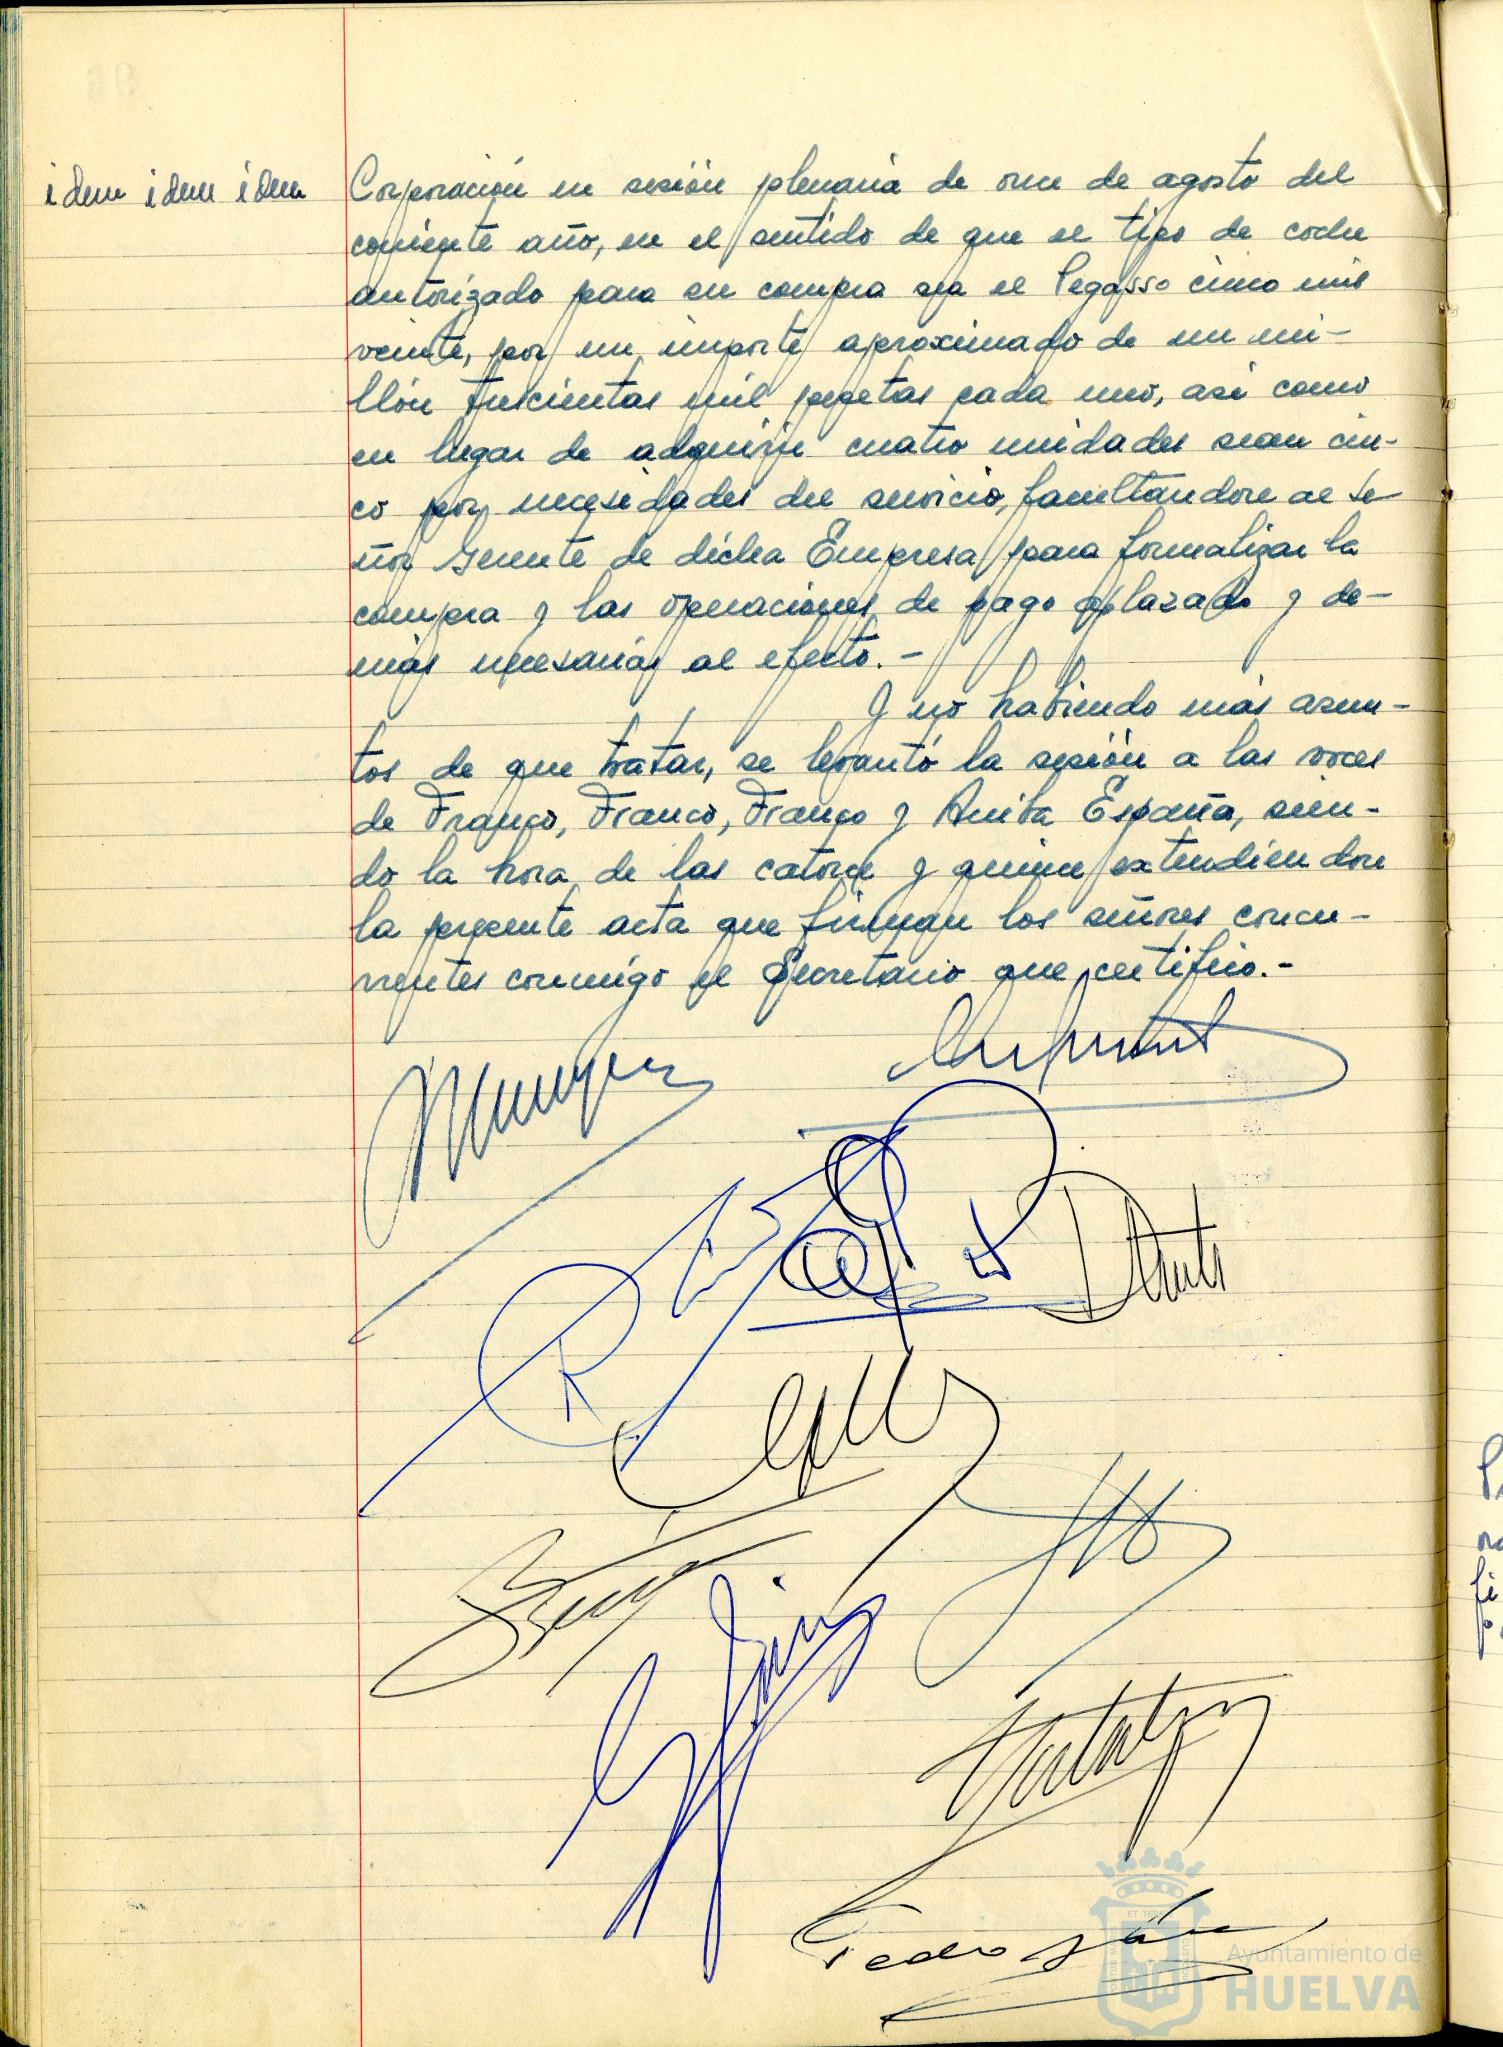 idem idem idem
Corporación en sesión plenaria de once de agosto del
corriente año, en el sentido de que el tipo de coche
autorizado para su compra sea el Pegasso cinco mil
veinte, por un importe aproximado de un mi-
llón trescientas mil pesetas cada uno, así como
en lugar de adquirir cuatro unidades sean cin-
co por necesidades del servicio, facultandose al Se
ñor Gerente de dicha Empresa para formalizar la
compra y las operaciones de pago aplazado y de-
más necesarias al efecto.-
Y no habiendo más asun-
tos de que tratar, se levantó la sesión a las voces
de Franco, Franco, Franco y Arriba España, sien-
do la hora de las catorce y quince extendiendose
la presente acta que firman los señores concu-
rrentes conmigo el Secretario que certifico.-
Pedro
Ayuntamiento de
HUELVA